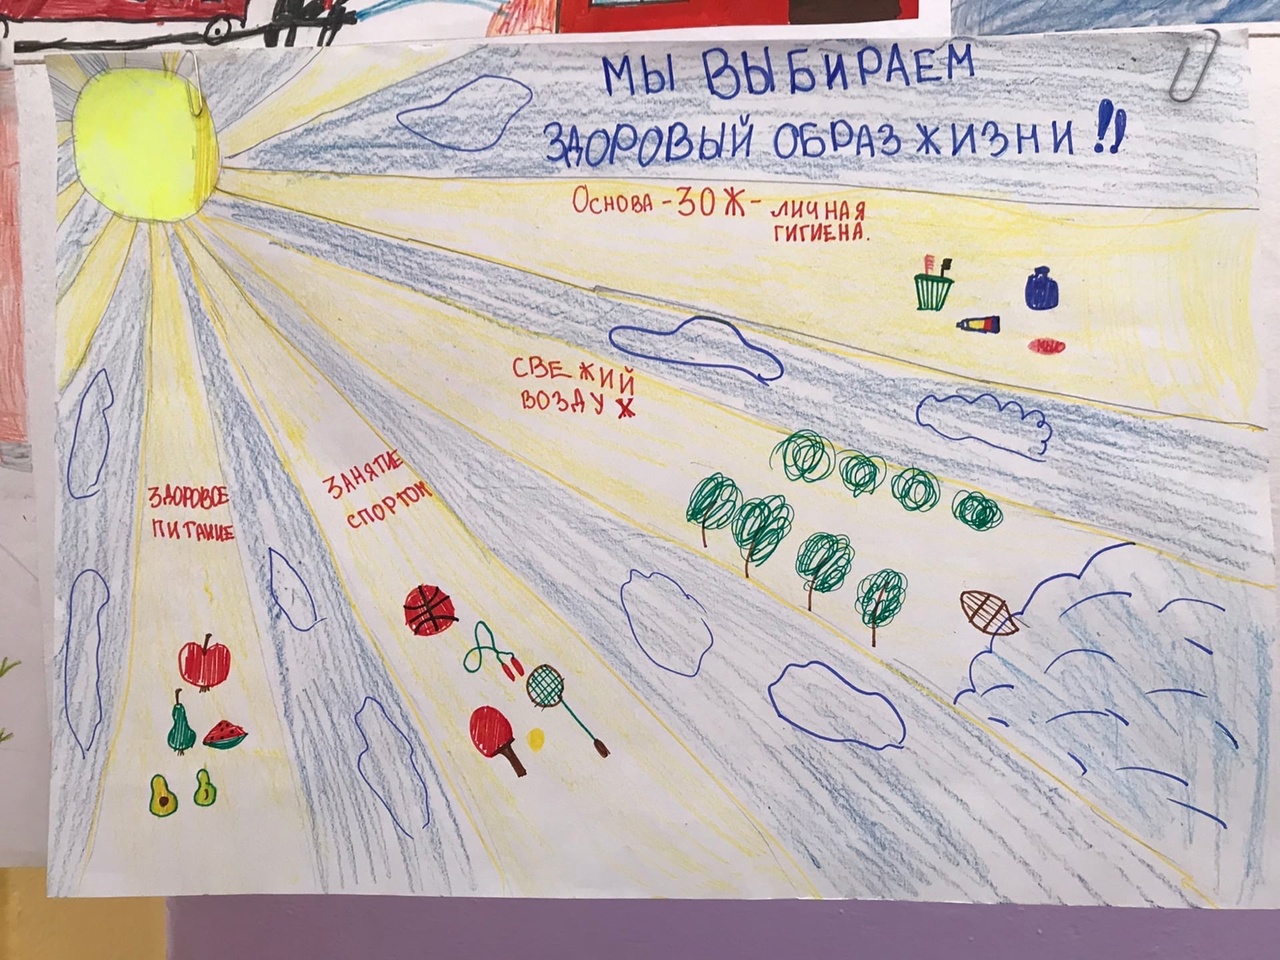 МЫ ВЫБИРАЕМ
ЗДОРОВЫЙ ОБРАЗ ЖИЗНИ!!
ОСНОВА - ЗОЖ - ЛИЧНАЯ
ГИГИЕНА.
МЫЛО
СВЕЖИЙ
ВОЗДУХ
ЗАНЯТИЕ
СПОРТОМ
ЗДОРОВОЕ
ПИТАНИЕ